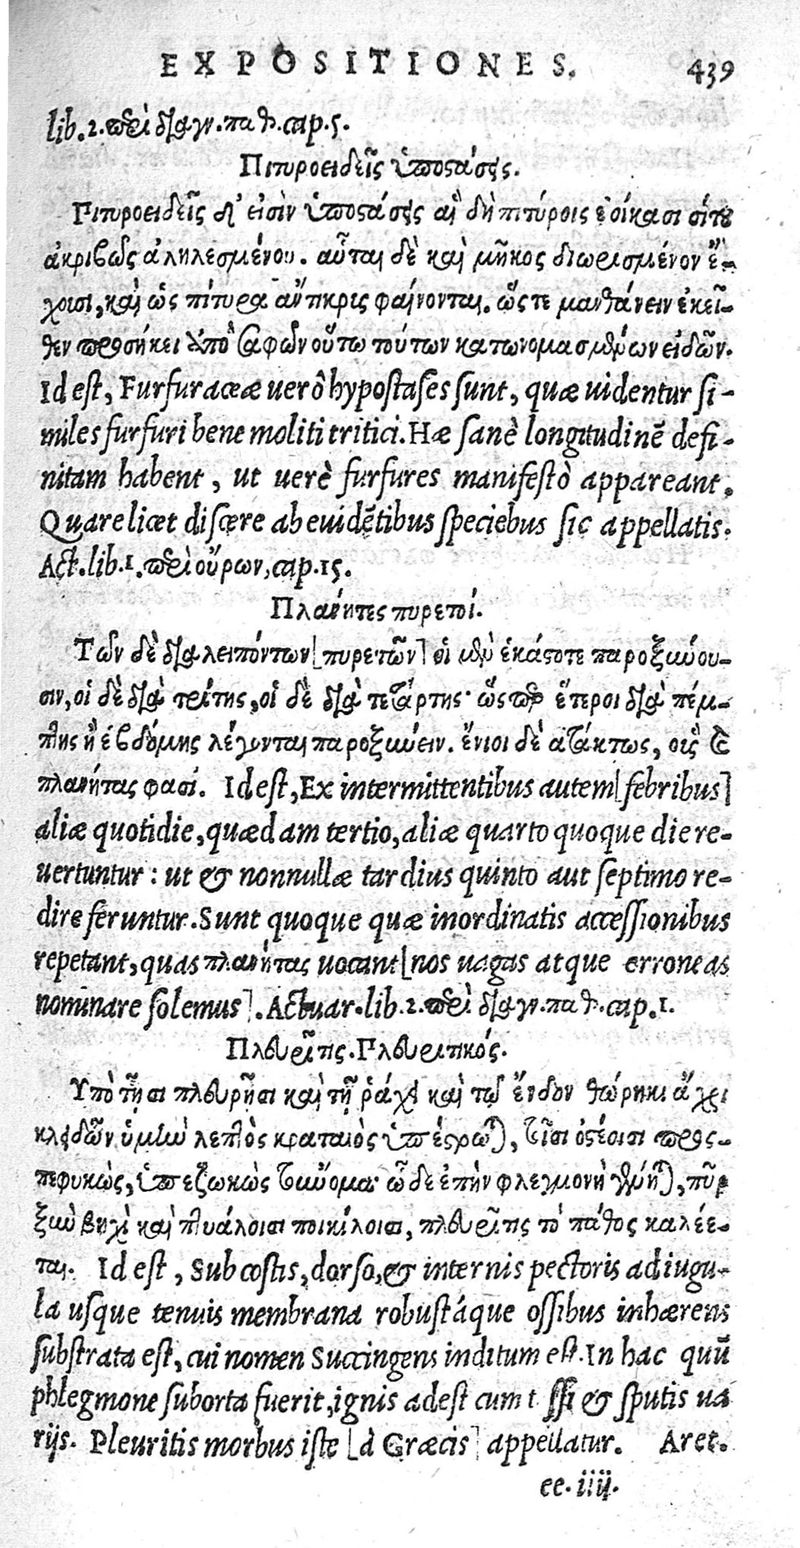 EXPOSITIONES. 439
lib.2. περὶ διαγν. παθ. cap. 5.
Πιτυροειδεῖς ὑποστάσεις.
Πιτυροειδεῖς δ' εἰσὶν ὑποστάσεις αἳ δὴ πιτύροις ἐοίκασι σίτου
ἀκριβῶς ἀληλεσμένου. αὗται δὲ καὶ μῆκος διωρισμένον ἔ-
χουσι, καὶ ὡς πίτυρα ἄντικρις φαίνονται. ὥστε μανθάνειν ἐκεῖ-
θεν προσήκει ὑπὸ σαφῶν οὕτω τούτων κατωνομασμένων εἰδῶν.
Id est, Furfuraceæ uerò hypostases sunt, quæ uidentur si-
miles furfuri bene moliti tritici. Hæ sanè longitudinē defi-
nitam habent, ut uerè furfures manifestò appareant.
Quare licet discere ab euidētibus speciebus sic appellatis.
Act. lib. 1. περὶ οὔρων, cap. 15.
Πλανήτες πυρετοί.
Τῶν δὲ διαλειπόντων [πυρετῶν] οἱ μὲν ἑκάστοτε παροξύνου-
σιν, οἱ δὲ διὰ τρίτης, οἱ δὲ διὰ τετάρτης· ὥσπερ ἕτεροι διὰ πέμ-
πτης ἢ ἑβδόμης λέγονται παροξύνειν. ἔνιοι δὲ ἀτάκτως, οἷς καὶ
πλανήτας φασί. Id est, Ex intermittentibus autem [febribus]
aliæ quotidie, quædam tertio, aliæ quarto quoque die re-
uertuntur: ut & nonnullæ tardius quinto aut septimo re-
dire feruntur. Sunt quoque quæ inordinatis accessionibus
repetant, quas πλανήτας uocant [nos uagas atque erroneas
nominare solemus]. Actuar. lib. 2. περὶ διαγν. παθ. cap. 1.
Πλευρῖτις. Πλευριτικός.
Ὑπὸ τῇσι πλευρῇσι καὶ τῇ ῥάχι καὶ τῷ ἔνδον θώρηκι ἄχρι
κληδῶν ὑμὴν λεπτὸς κραταιὸς ὑπέστρωται, τοῖσι ὀστέοισι προς-
πεφυκὼς, ὑπεζωκὼς τοὔνομα· ᾧδε ἐπὴν φλεγμονὴ γένηται, πῦρ
ξὺν βηχὶ καὶ πτυάλοισι ποικίλοισι, πλευρῖτις τὸ πάθος καλέε-
ται. Id est, Sub costis, dorso, & internis pectoris ad iugu-
la usque tenuis membrana robustáque ossibus inhærens
substrata est, cui nomen Succingens inditum est. In hac quū
phlegmone suborta fuerit, ignis adest cum t ssi & sputis ua
rijs. Pleuritis morbus iste [à Græcis] appellatur. Aret.
ee. iiij.